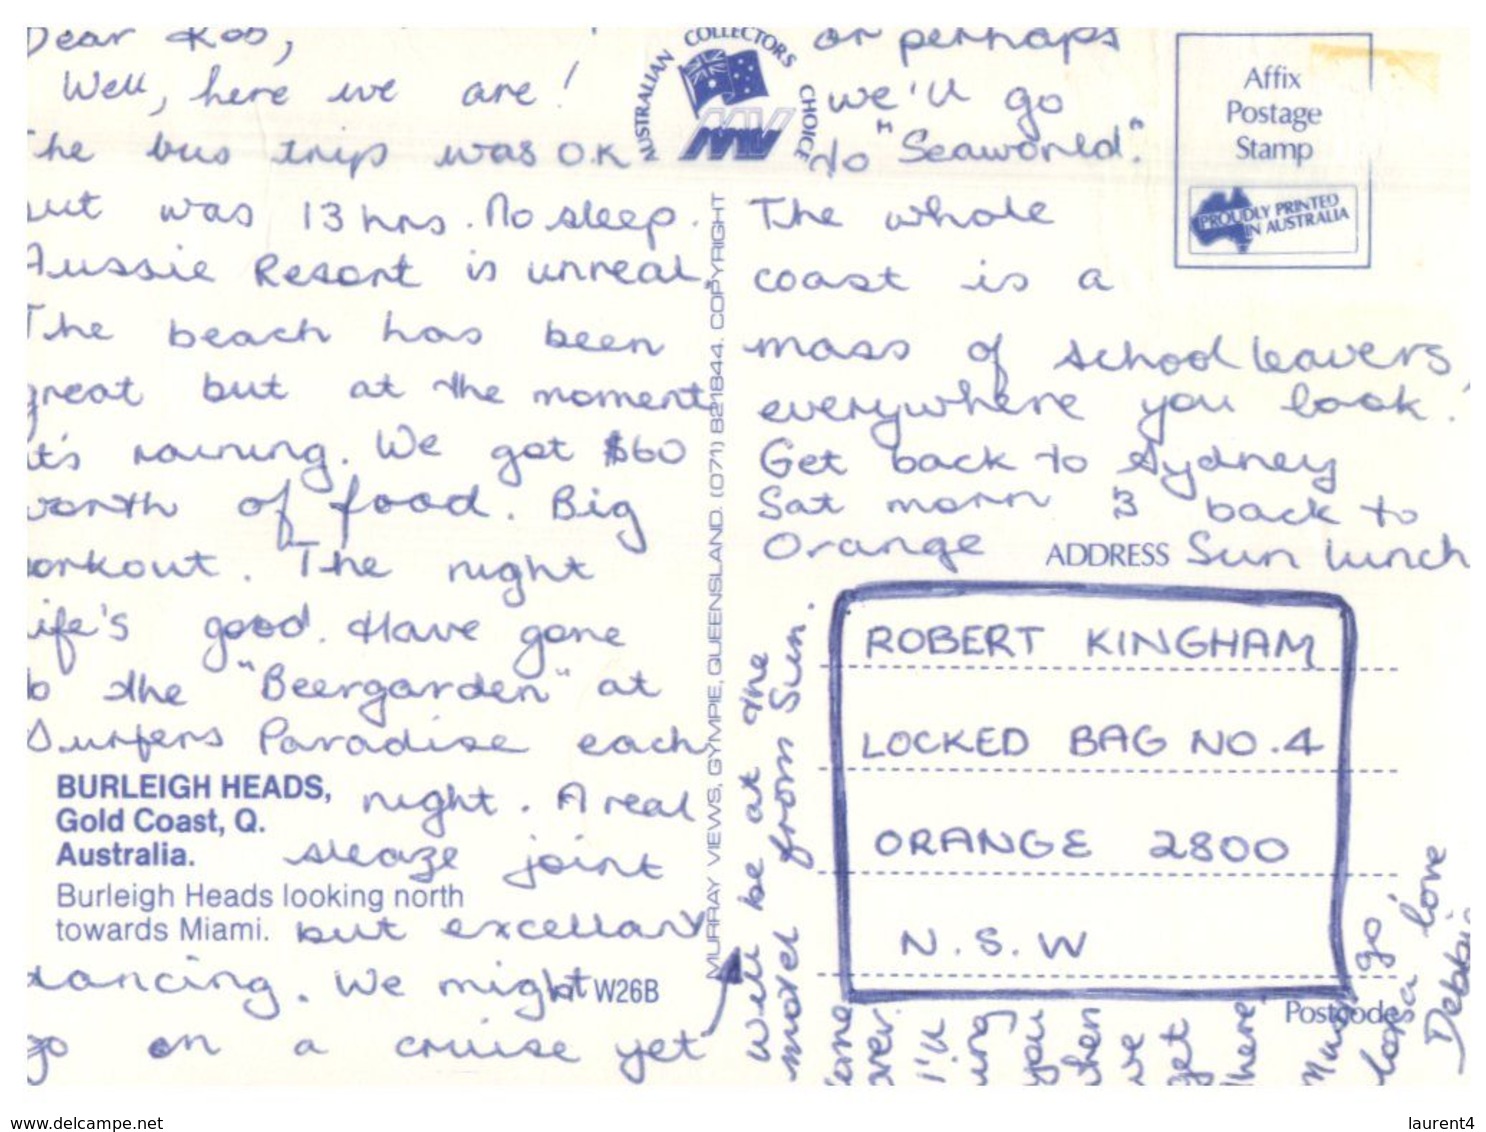 Dear Rob,
Well, here we are!
The bus trip was O.K
but was 13 hrs. No sleep.
Aussie Resort is unreal.
The beach has been
great but at the moment
it's raining. We got $60
worth of food. Big
workout. The night
life's good. Have gone
to the "Beergarden" at
Surfers Paradise each
night. A real
sleaze joint
but excellant
dancing. We might
go on a cruise yet
BURLEIGH HEADS,
Gold Coast, Q.
Australia.
Burleigh Heads looking north
towards Miami.
W26B
AUSTRALIAN COLLECTORS CHOICE
MV
MURRAY VIEWS, GYMPIE, QUEENSLAND. (071) 821844. COPYRIGHT
or perhaps
we'll go
to "Seaworld".
The whole
coast is a
mass of school leavers,
everywhere you look!
Get back to Sydney
Sat morn & back to
Orange Sun lunch
will be at the
motel from Sun.
over.
I'll
you
then
we
get
there.
Must go
love
Debbie
Affix
Postage
Stamp
PROUDLY PRINTED
IN AUSTRALIA
ADDRESS
ROBERT KINGHAM
LOCKED BAG NO.4
ORANGE 2800
N.S.W
Postcode
www.delcampe.net
laurent4